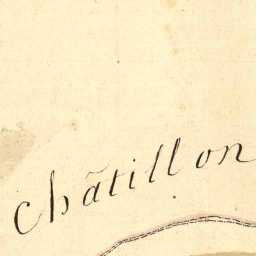 Châtillon